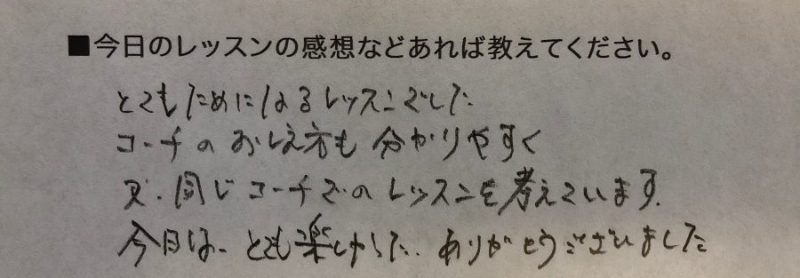 ■今日のレッスンの感想などあれば教えてください。
とてもためになるレッスンでした
コーチのおしえ方も分かりやすく
又、同じコーチでのレッスンを考えています。
今日は、とても楽しかった、ありがとうございました